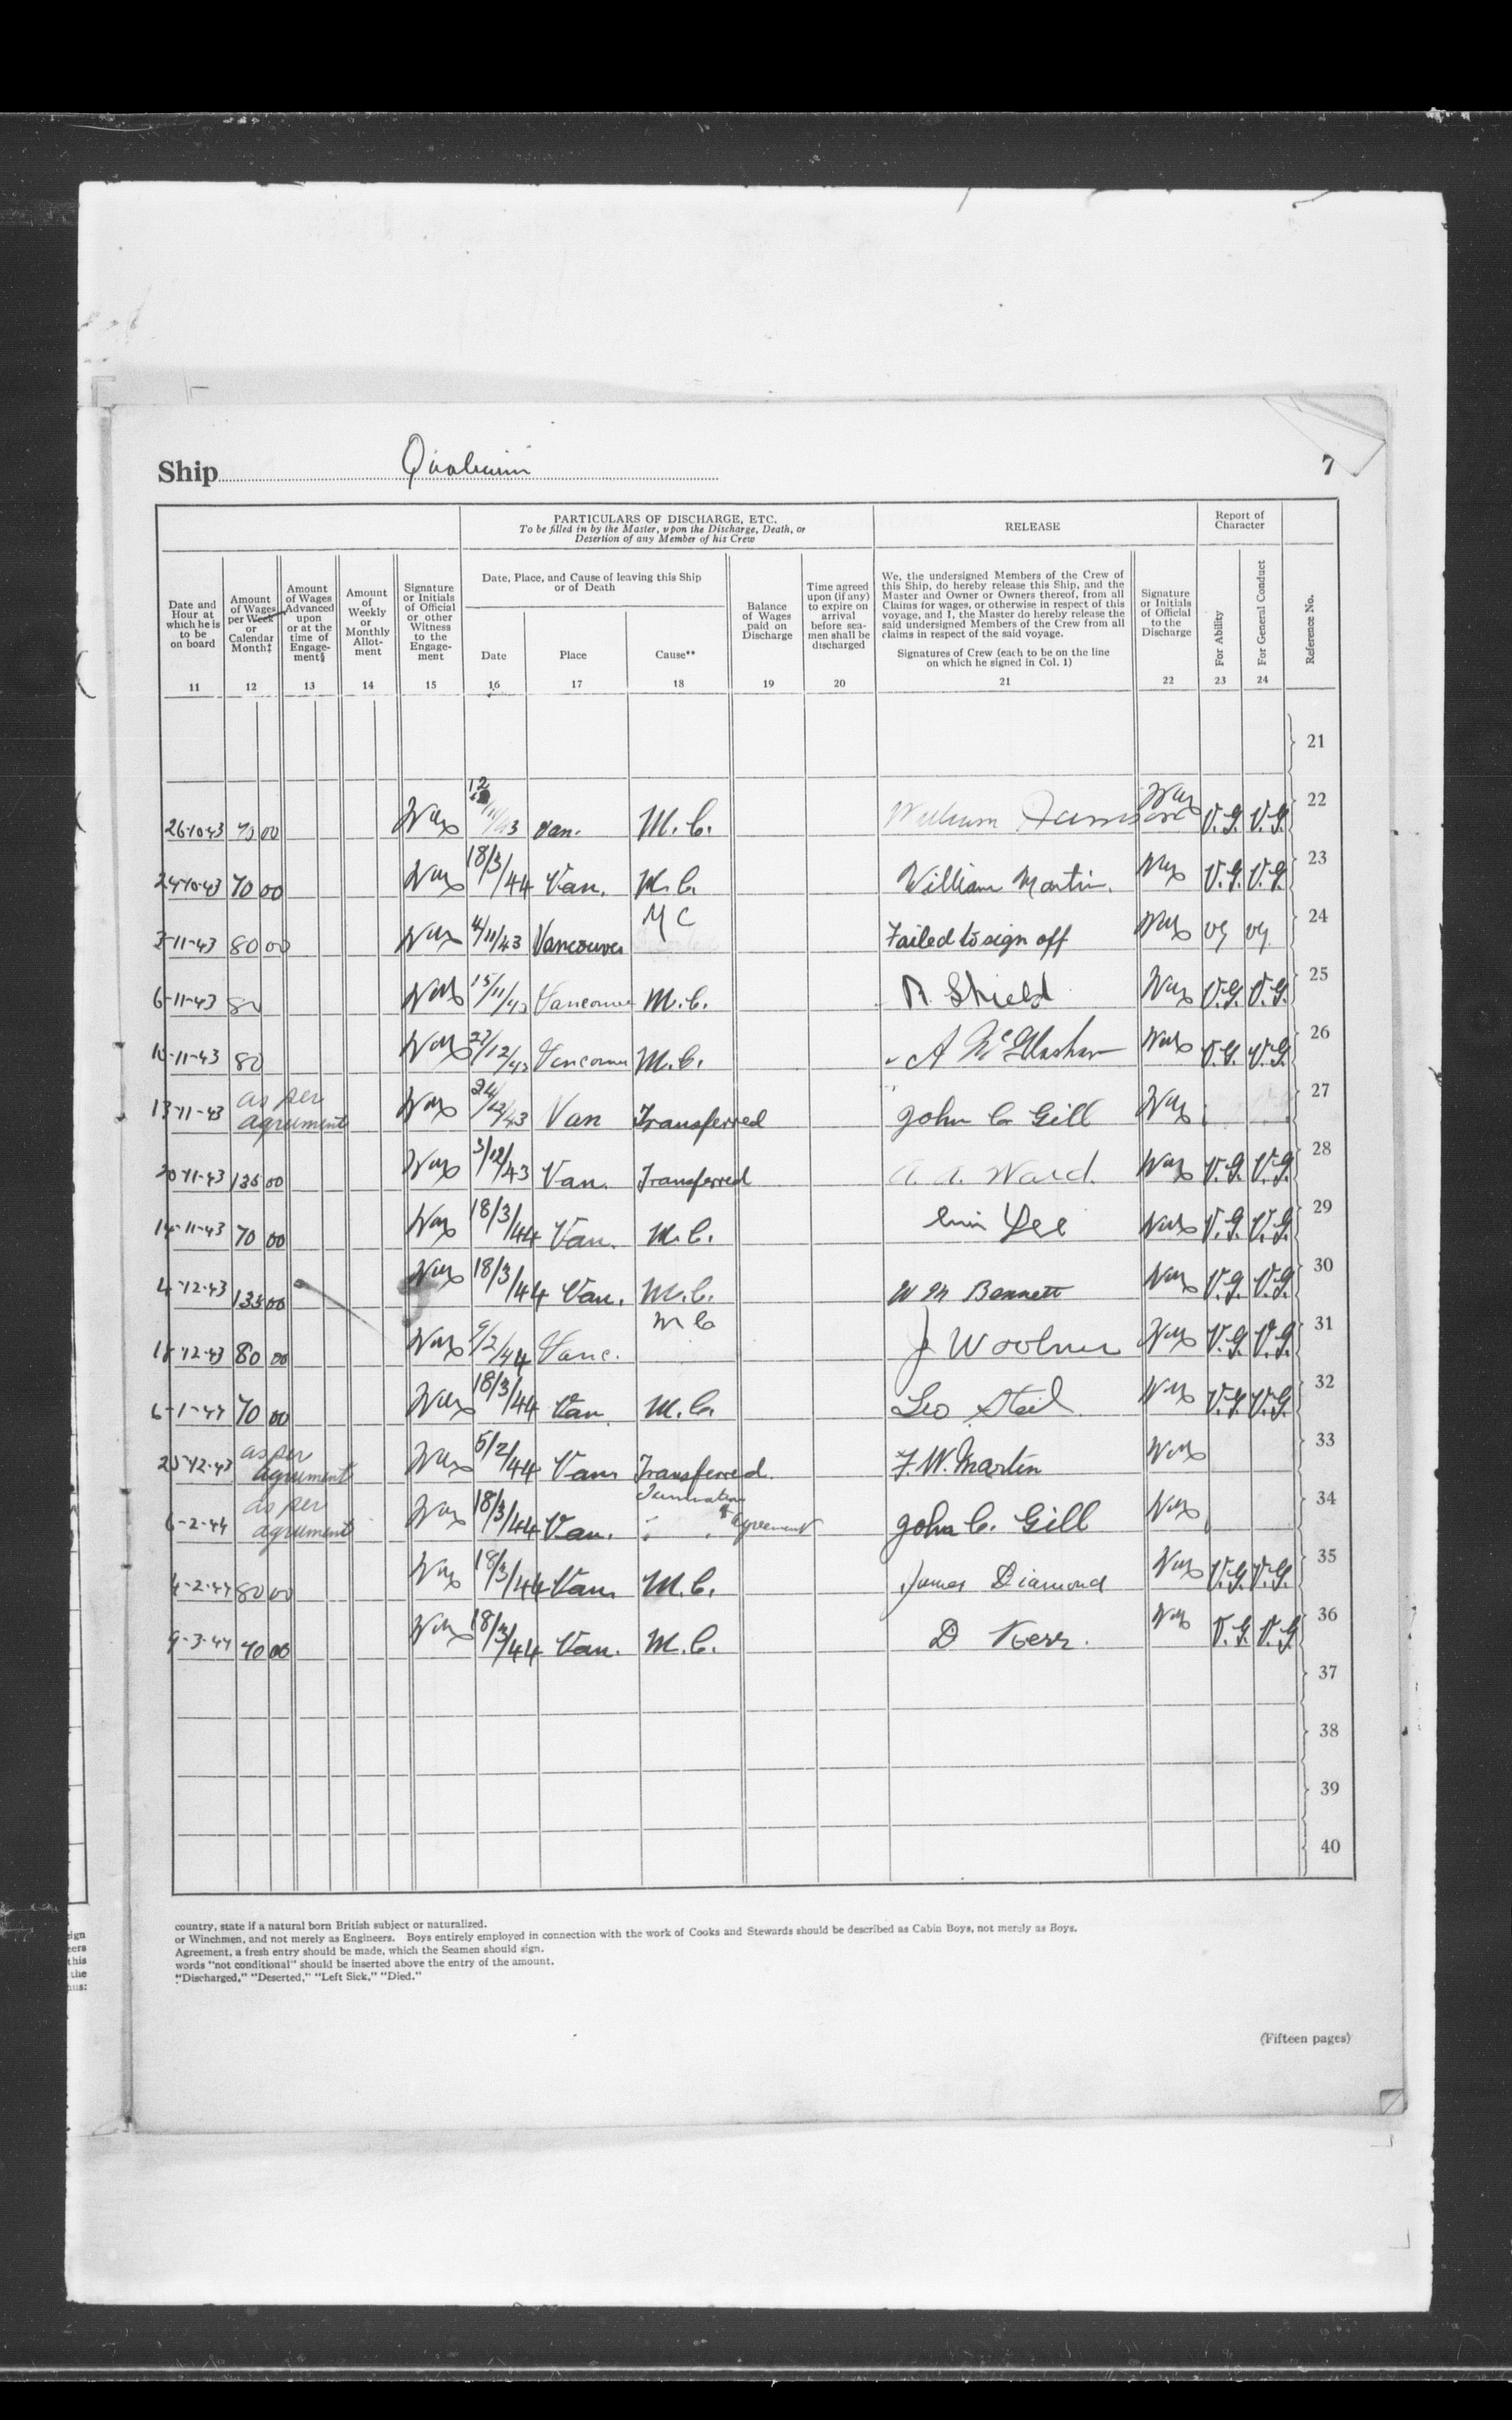 Ship
7
PARTICULARS OF DISCHARGE, ETC.
To be filled in by the Master, upon the Discharge, Death, or
Desertion of any Member of his Crew
RELEASE
Report of
Character
Date and
Hour at
which he is
to be
on board
Amount
of Wages
per Week
or
Calendar
Month‡
Amount
of Wages
Advanced
upon
or at the
time of
Engage-
ment§
Amount
of
Weekly
or
Monthly
Allot-
ment
Signature
or Initials
of Official
or other
Witness
to the
Engage-
ment
Date, Place, and Cause of leaving this Ship
or of Death
Date
Place
Cause**
Balance
of Wages
paid on
Discharge
Time agreed
upon (if any)
to expire on
arrival
before sea-
men shall be
discharged
We, the undersigned Members of the Crew of
this Ship, do hereby release this Ship, and the
Master and Owner or Owners thereof, from all
Claims for wages, or otherwise in respect of this
voyage, and I, the Master do hereby release the
said undersigned Members of the Crew from all
claims in respect of the said voyage.
Signatures of Crew (each to be on the line
on which he signed in Col. 1)
Signature
or Initials
of Official
to the
Discharge
For Ability
For General Conduct
Reference No.
11 12 13 14 15 16 17 18 19 20 21 22 23 24
21
26-10-43 70 00 Van. M.C. William V.G. V.G. 22
70 00 18/3/44 Van. M.C. William Martin. V.G. V.G. 23
3-11-43 80 00 11/43 Vancouver M C Failed to sign off VG VG 24
6-11-43 80 15/11/43 Vancouver M.C. R. Shield V.G. V.G. 25
80 12/43 Vancouver M.C. A McGlashan V.G. V.G. 26
13-11-43 as per agrument 24/12/43 Van Transferred John C Gill 27
20-11-43 135 00 3/12/43 Van. Transferred A. A. Ward. V.G. V.G. 28
14-11-43 70 00 18/3/44 Van. M.C. Yee V.G. V.G. 29
4-12-43 135 00 18/3/44 Van. M.C. W M Bennett V.G. V.G. 30
80 00 2/44 Vanc. M C J Woolner V.G. V.G. 31
6-1-44 70 00 18/3/44 Van. M.C. Leo Steil V.G. V.G. 32
as per agrument 5/2/44 Van Transferred. F.W. Martin 33
6-2-44 as per agrument 18/3/44 Van. Termination of Agreement John C. Gill 34
4-2-44 80 00 18/3/44 Van. M.C. James Diamond V.G. V.G. 35
9-3-44 70 00 18/3/44 Van. M.C. D Kerr. V.G. V.G 36
37
38
39
40
country, state if a natural born British subject or naturalized.
or Winchmen, and not merely as Engineers. Boys entirely employed in connection with the work of Cooks and Stewards should be described as Cabin Boys, not merely as Boys.
Agreement, a fresh entry should be made, which the Seamen should sign.
words "not conditional" should be inserted above the entry of the amount.
"Discharged," "Deserted," "Left Sick," "Died."
(Fifteen pages)